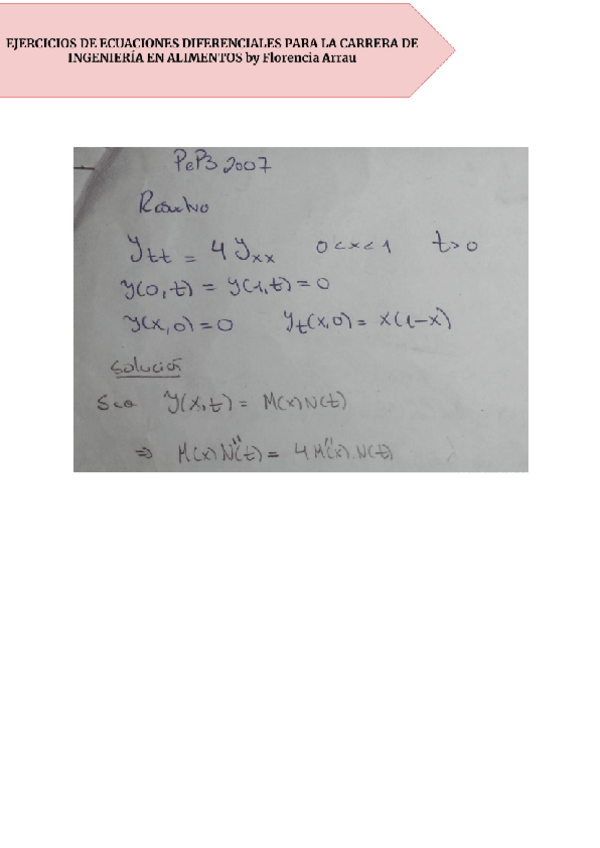 EJERCICIOS DE ECUACIONES DIFERENCIALES PARA LA CARRERA DE
INGENIERÍA EN ALIMENTOS by Florencia Arrau
PeP3 2007
Resuelva
y_tt = 4 y_xx 0<x<1 t>0
y(0,t) = y(1,t) = 0
y(x,0) = 0 y_t(x,0) = x(1-x)
Solución
Sea y(x,t) = M(x)N(t)
⇒ M(x)N''(t) = 4M''(x).N(t)